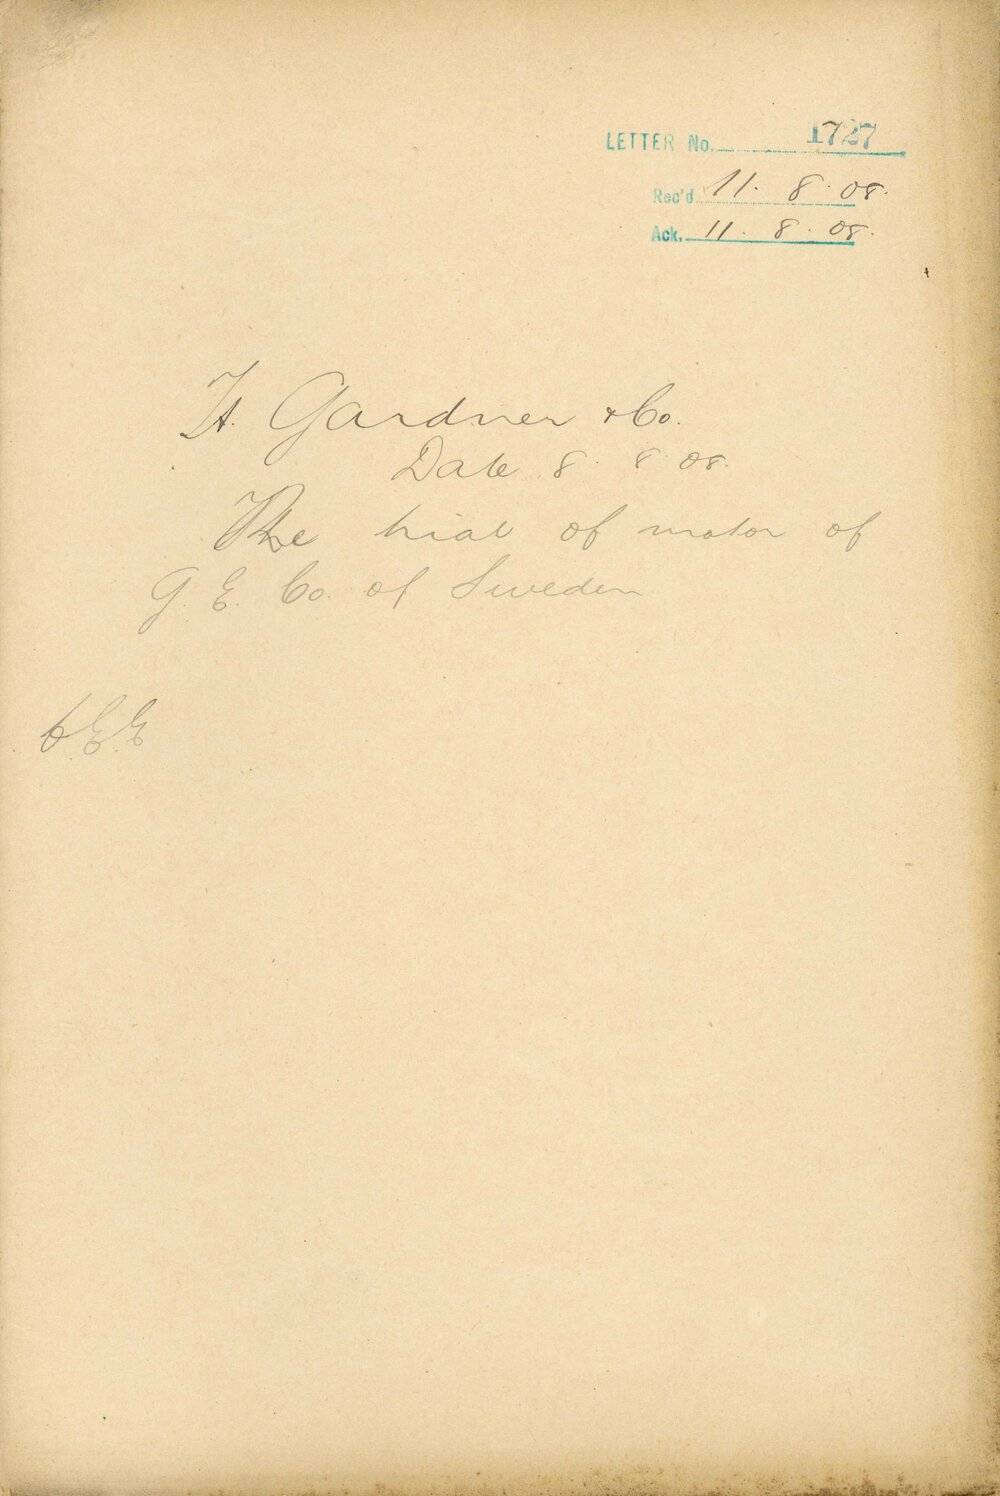 LETTER No. 1727
Rec'd 11. 8. 08.
Ack. 11. 8. 08.
Gardner & Co.
Date 8. 8. 08.
The trial of motor of
G. E. Co. of Sweden